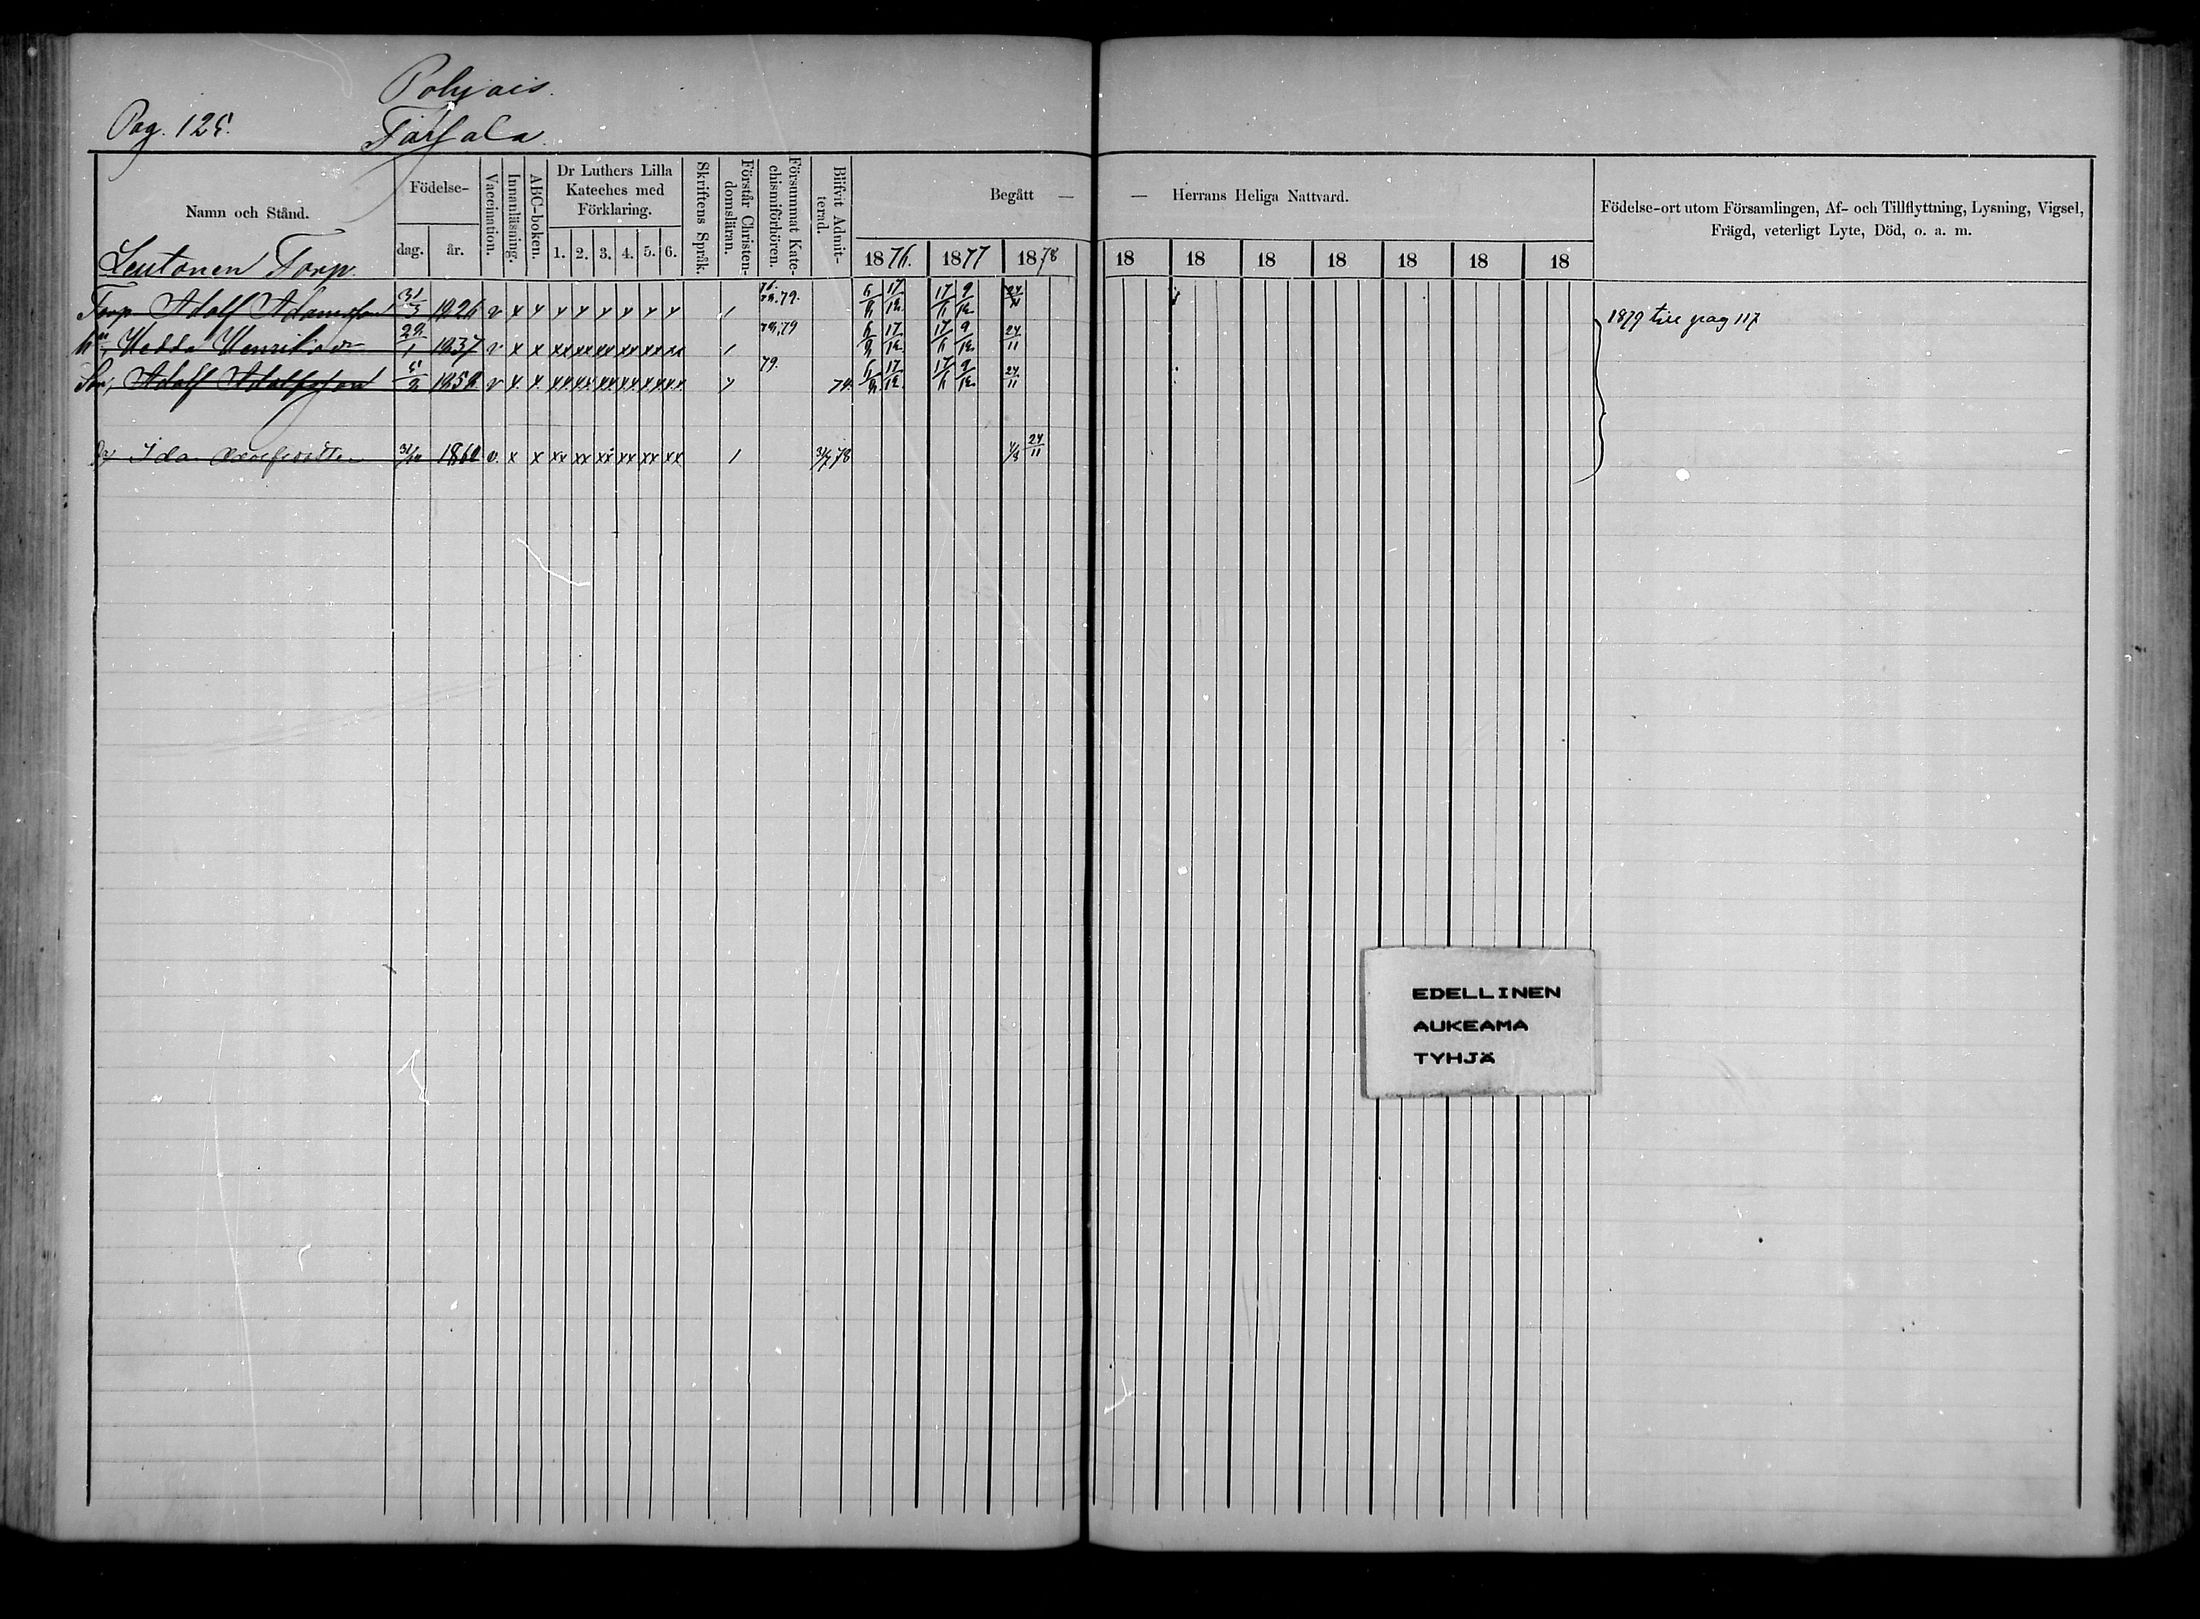 Pohjois.
Pag. 125.
Namn och Stånd.
Födelse-
dag.
år.
Vaccination.
Innanläsning.
ABC-boken.
Dr Luthers Lilla
Kateches med
Förklaring.
1. 2. 3. 4. 5. 6.
Skriftens Språk.
Förstår Christen-
domsläran.
Försummat Kate-
chismiförhören.
Blifvit Admit-
terad.
Begått —
— Herrans Heliga Nattvard.
1876. 1877 1878
18 18 18 18 18 18 18
Födelse-ort utom Församlingen, Af- och Tillflyttning, Lysning, Vigsel,
Frägd, veterligt Lyte, Död, o. a. m.
Torp.
Torp. Adolf Adamsson 31/3 1826 v x x x x x x x x / 79. 17/12 17/6 9/12
1879 till pag 117
Hedda Henriksdr 1837 v x x xx xx xx xx xx xx / 79 17/12 17/6 9/12 24/11
Son, Adolf Adolfsson 1858 v x x xx xx xx xx xx xx 79. 17/12 17/6 9/12 24/11
Ida 1860 v. x x xx xx xx xx xx xx / 78 24/11
EDELLINEN
AUKEAMA
TYHJÄ